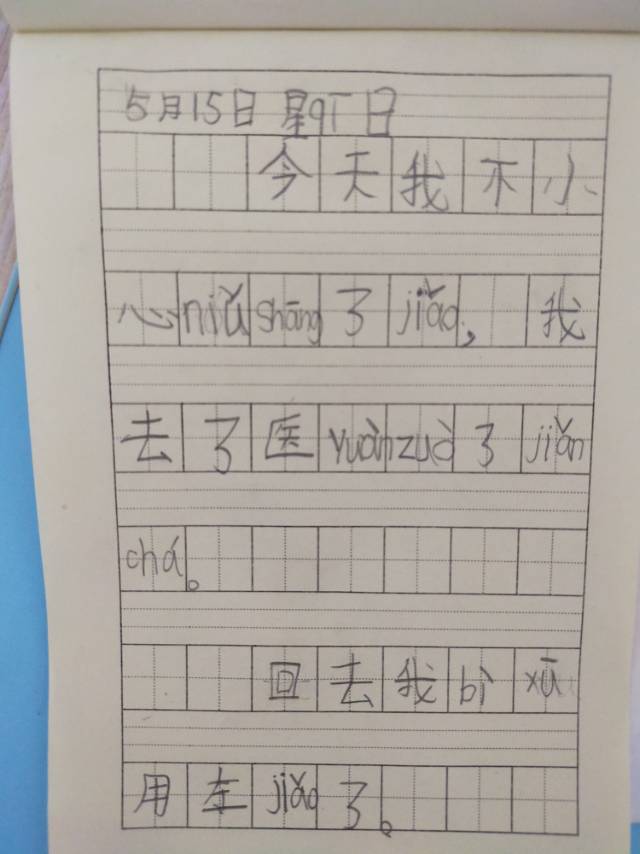 5月15日 星qī日
今天我不小
心niǔshāng了jiǎo，我
去了医yuànzuò了jiǎn
chá。
回去我bì xū
用左jiǎo了。